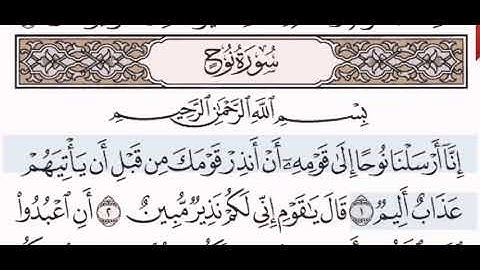 سُورَةُ نُوحٍ
بِسْمِ ٱللَّهِ ٱلرَّحْمَٰنِ ٱلرَّحِيمِ
إِنَّآ أَرْسَلْنَا نُوحًا إِلَىٰ قَوْمِهِۦٓ أَنْ أَنذِرْ قَوْمَكَ مِن قَبْلِ أَن يَأْتِيَهُمْ
عَذَابٌ أَلِيمٌ ١ قَالَ يَٰقَوْمِ إِنِّى لَكُمْ نَذِيرٌ مُّبِينٌ ٢ أَنِ ٱعْبُدُوا۟